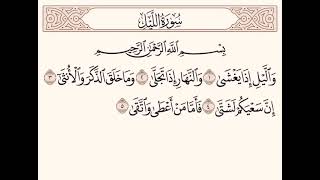 سُورَةُ اللَّيْلِ
بِسْمِ اللَّهِ الرَّحْمَٰنِ الرَّحِيمِ
وَاللَّيْلِ إِذَا يَغْشَىٰ ١ وَالنَّهَارِ إِذَا تَجَلَّىٰ ٢ وَمَا خَلَقَ الذَّكَرَ وَالْأُنثَىٰ ٣
إِنَّ سَعْيَكُمْ لَشَتَّىٰ ٤ فَأَمَّا مَنْ أَعْطَىٰ وَاتَّقَىٰ ٥